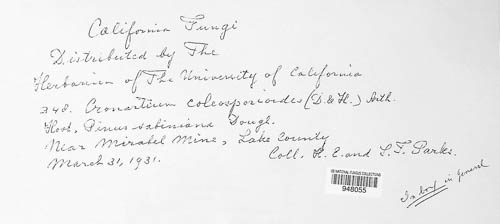 California Fungi
Distributed by The
Herbarium of The University of California
348. Cronartium coleosporioides (D. & H.) Arth.
Host, Pinus sabiniana Dougl.
Near Mirabel Mine, Lake County
March 31, 1931.
Coll. H. E. and S. T. Parks.
US NATIONAL FUNGUS COLLECTIONS
948055
in General